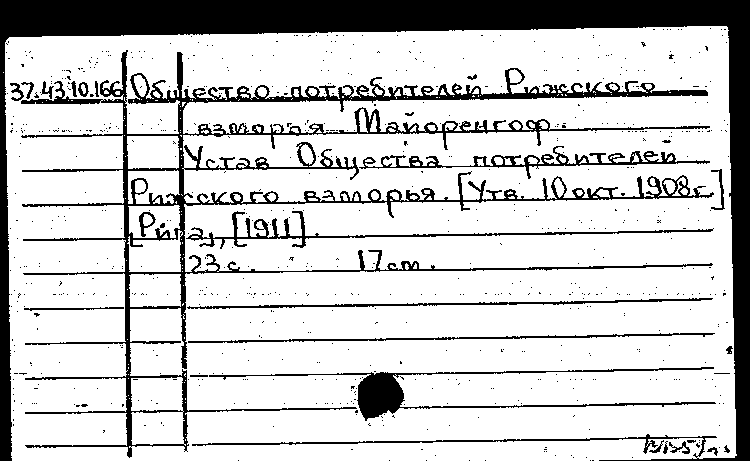 37.43.10.166 Общество потребителей Рижского
взморья. Майоренгоф.
Устав Общества потребителей
Рижского взморья. [Утв. 10 окт. 1908 г.]
[Рига], [1911].
23 с. 17 см.